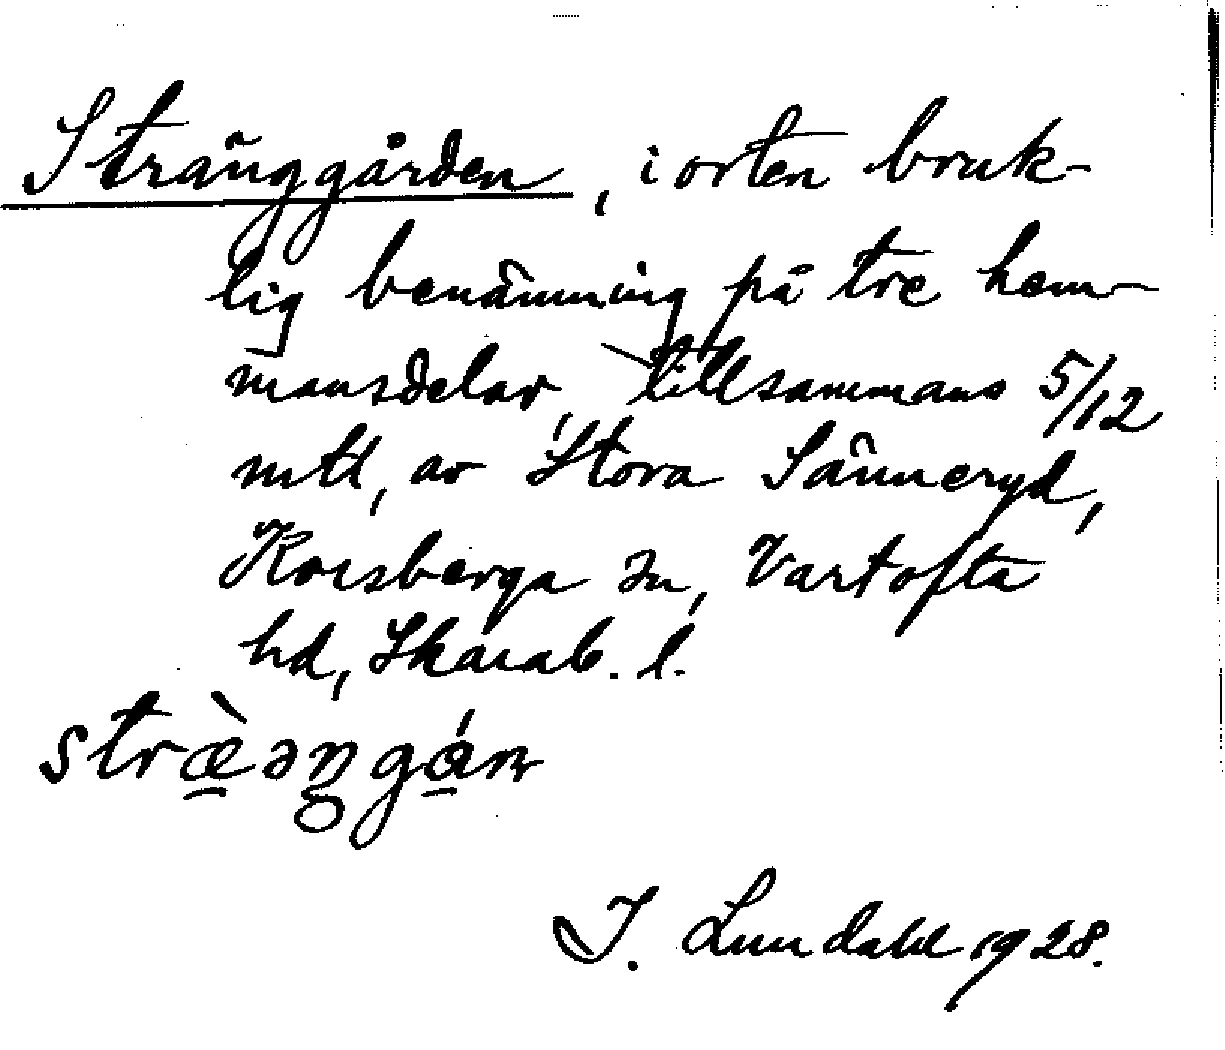 Stränggården, i orten bruk-
lig benämning på tre hem-
mansdelar, tillsammans 5/12
mtl, av Stora Sänneryd,
Korsberga sn, Vartofta
hd, Skarab. l.
I. Lundahl 1928.